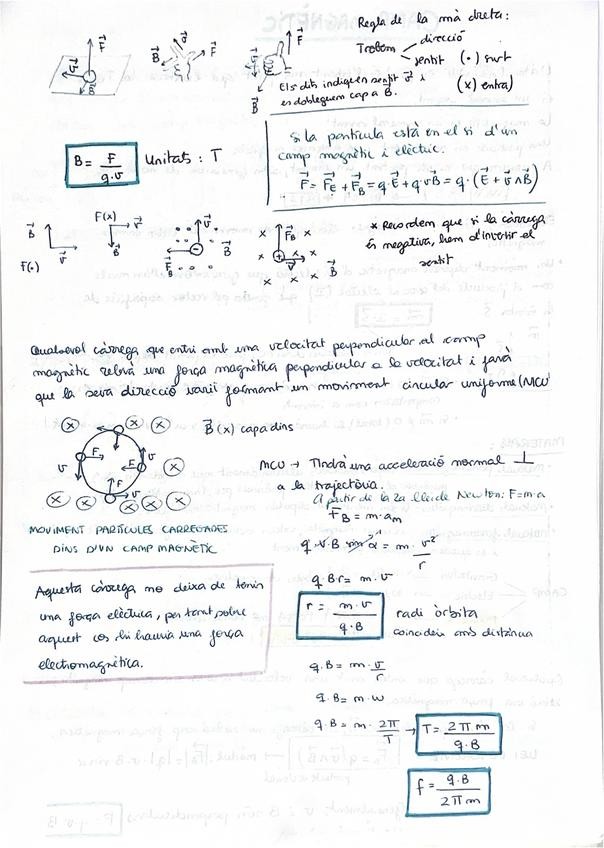 Regla de la mà dreta:
Trobem direcció
sentit (•) surt
(x) entra
Els dits indiquen sentit v⃗ i
es dobleguen cap a B⃗.
B = F / q·v
Unitats : T
Si la partícula està en el si d'un
camp magnètic i elèctric.
F⃗ = F⃗E + F⃗B = q·E⃗ + q·v⃗∧B⃗ = q·(E⃗ + v⃗∧B⃗)
F(x)
F(•)
* Recordem que si la càrrega
és negativa, hem d'invertir el
sentit
Qualsevol càrrega que entri amb una velocitat perpendicular al camp
magnètic rebrà una força magnètica perpendicular a la velocitat i farà
que la seva direcció variï formant un moviment circular uniforme (MCU)
B⃗ (x) cap a dins
MCU → Tindrà una acceleració normal ⊥
a la trajectòria.
A partir de la 2a llei de Newton: F=m·a
F⃗B = m·an
q·v·B sin α = m· v²/r
MOVIMENT PARTÍCULES CARREGADES
DINS D'UN CAMP MAGNÈTIC
q·B·r = m·v
Aquesta càrrega no deixa de tenir
una força elèctrica, per tant, sobre
aquest cos hi hauria una força
electromagnètica.
r = m·v / q·B
radi òrbita
coincideix amb distància
q·B = m· v/r
q·B = m·w
q·B = m· 2π/T → T = 2πm / q·B
f = q·B / 2πm